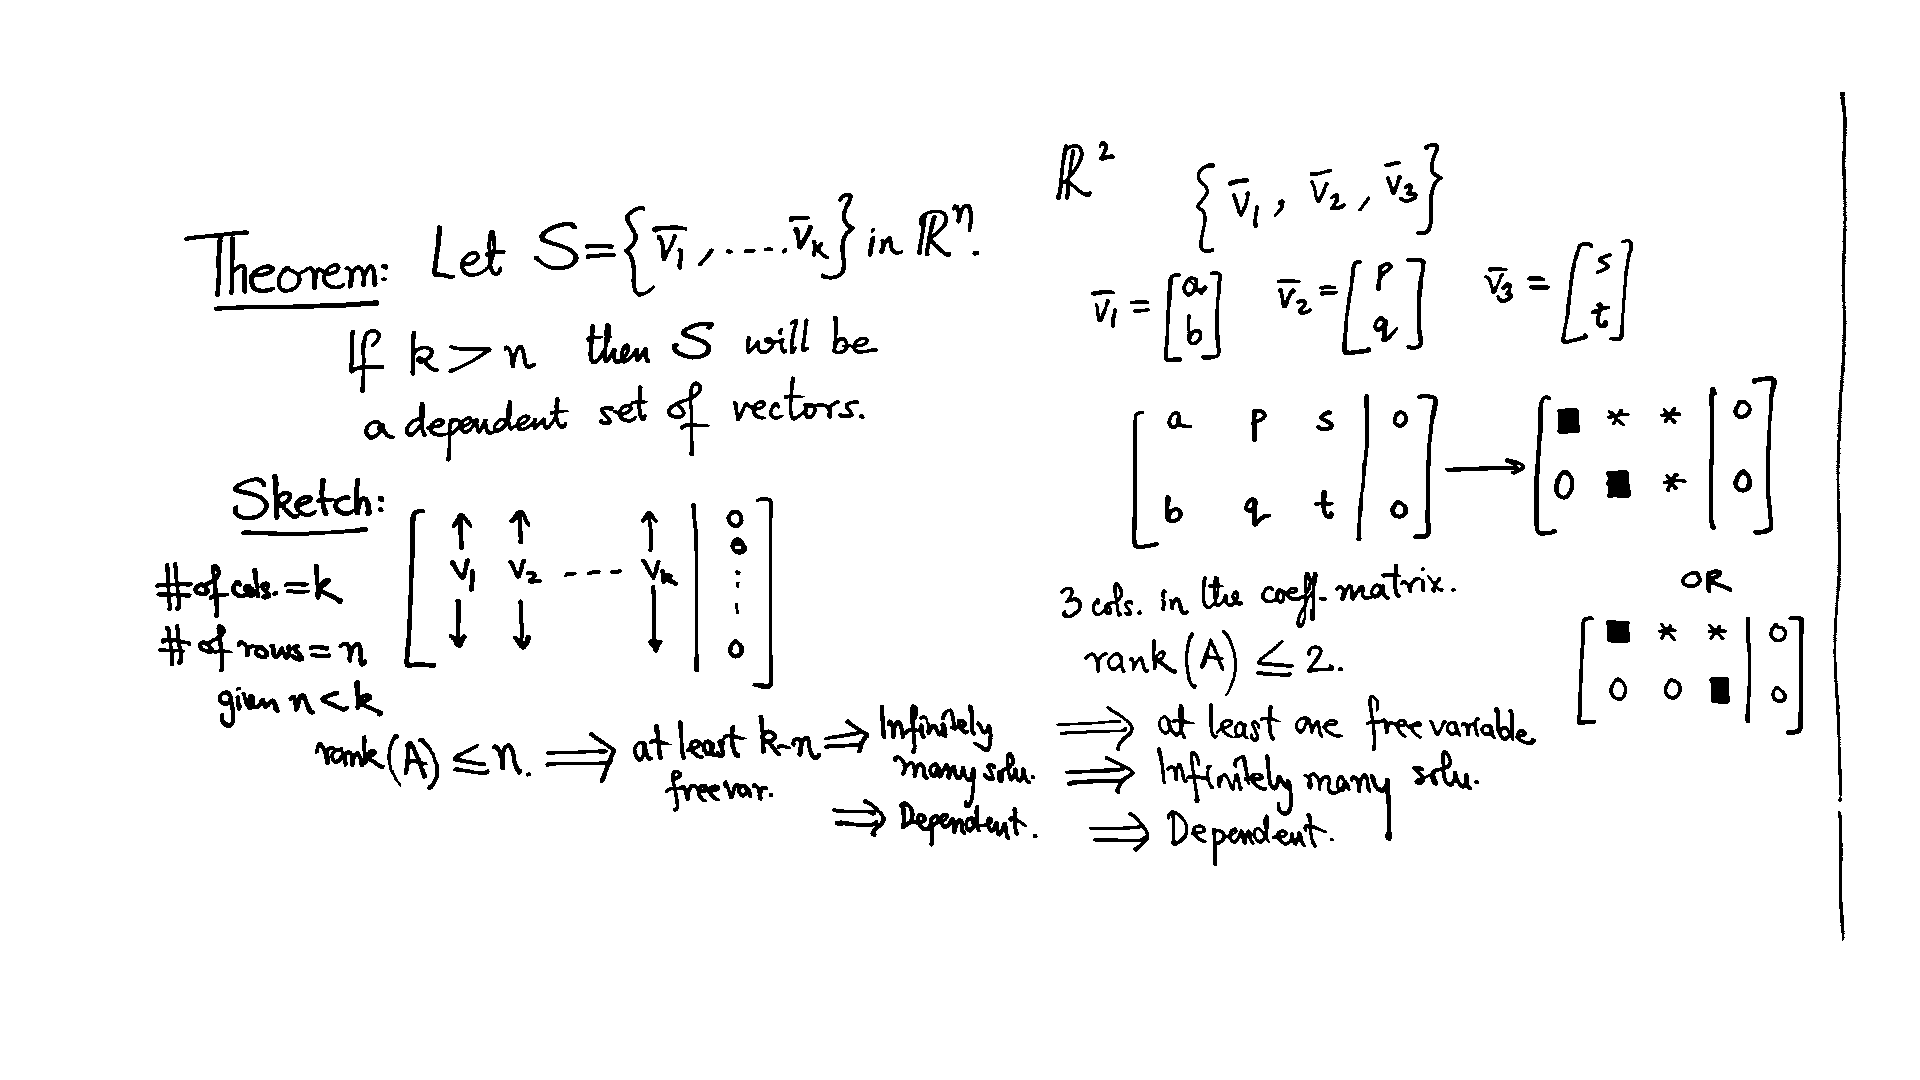 Theorem: Let S={v̄₁, ....v̄ₖ} in ℝⁿ.
If k>n then S will be
a dependent set of vectors.
Sketch:
[ ↑ ↑ ↑ | 0 ]
[ v₁ v₂ --- vₖ | 0 ⋮ ]
[ ↓ ↓ ↓ | 0 ]
# of cols. = k
# of rows = n
given n < k
rank(A) ≤ n. ⟹ at least k-n ⟹ Infinitely
freevar. many solu.
⟹ Dependent.
ℝ² {v̄₁, v̄₂, v̄₃}
v̄₁ = [a b] v̄₂ = [p q] v̄₃ = [s t]
[ a p s | 0 ] ⟶ [ ■ * * | 0 ]
[ b q t | 0 ] [ 0 ■ * | 0 ]
OR
[ ■ * * | 0 ]
[ 0 0 ■ | 0 ]
3 cols. in the coeff. matrix.
rank(A) ≤ 2.
⟹ at least one free variable
⟹ Infinitely many solu.
⟹ Dependent.